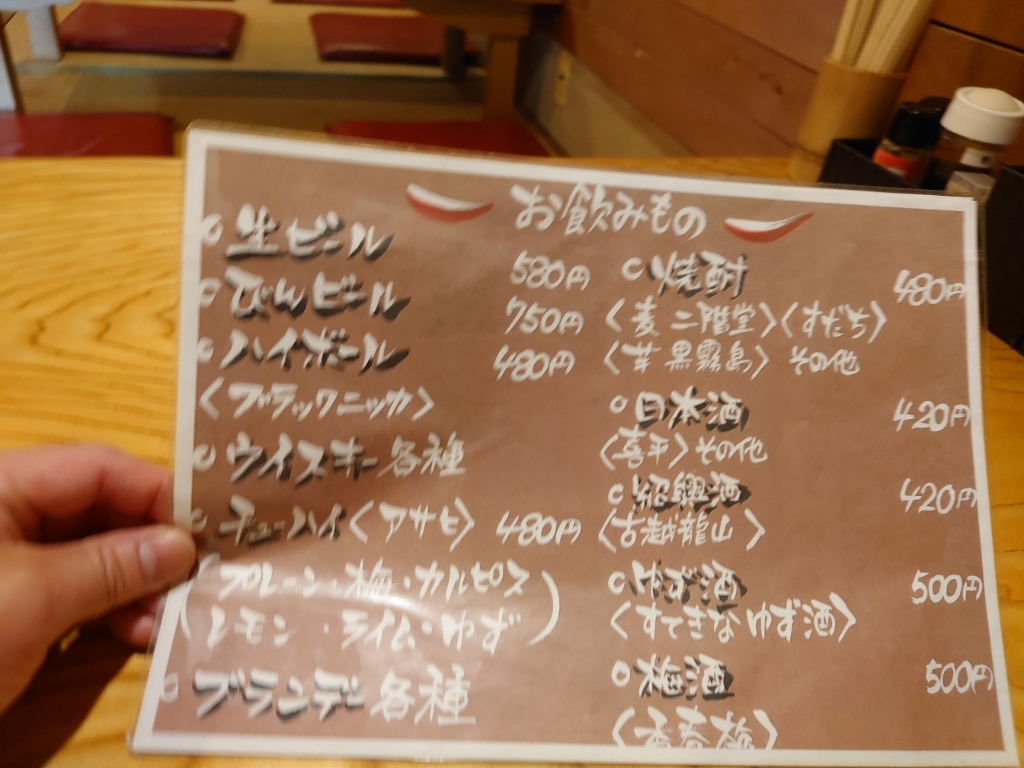 お飲みもの
○生ビール 580円
○びんビール 750円
○ハイボール 480円
〈ブラックニッカ〉
○ウイスキー各種
○チューハイ〈アサヒ〉 480円
(プレーン・梅・カルピス
レモン・ライム・ゆず)
○ブランデー各種
○焼酎 480円
〈麦 二階堂〉〈すだち〉
〈芋 黒霧島〉 その他
○日本酒 420円
〈喜平〉その他
○紹興酒 420円
〈古越龍山〉
○ゆず酒 500円
〈すてきなゆず酒〉
○梅酒 500円